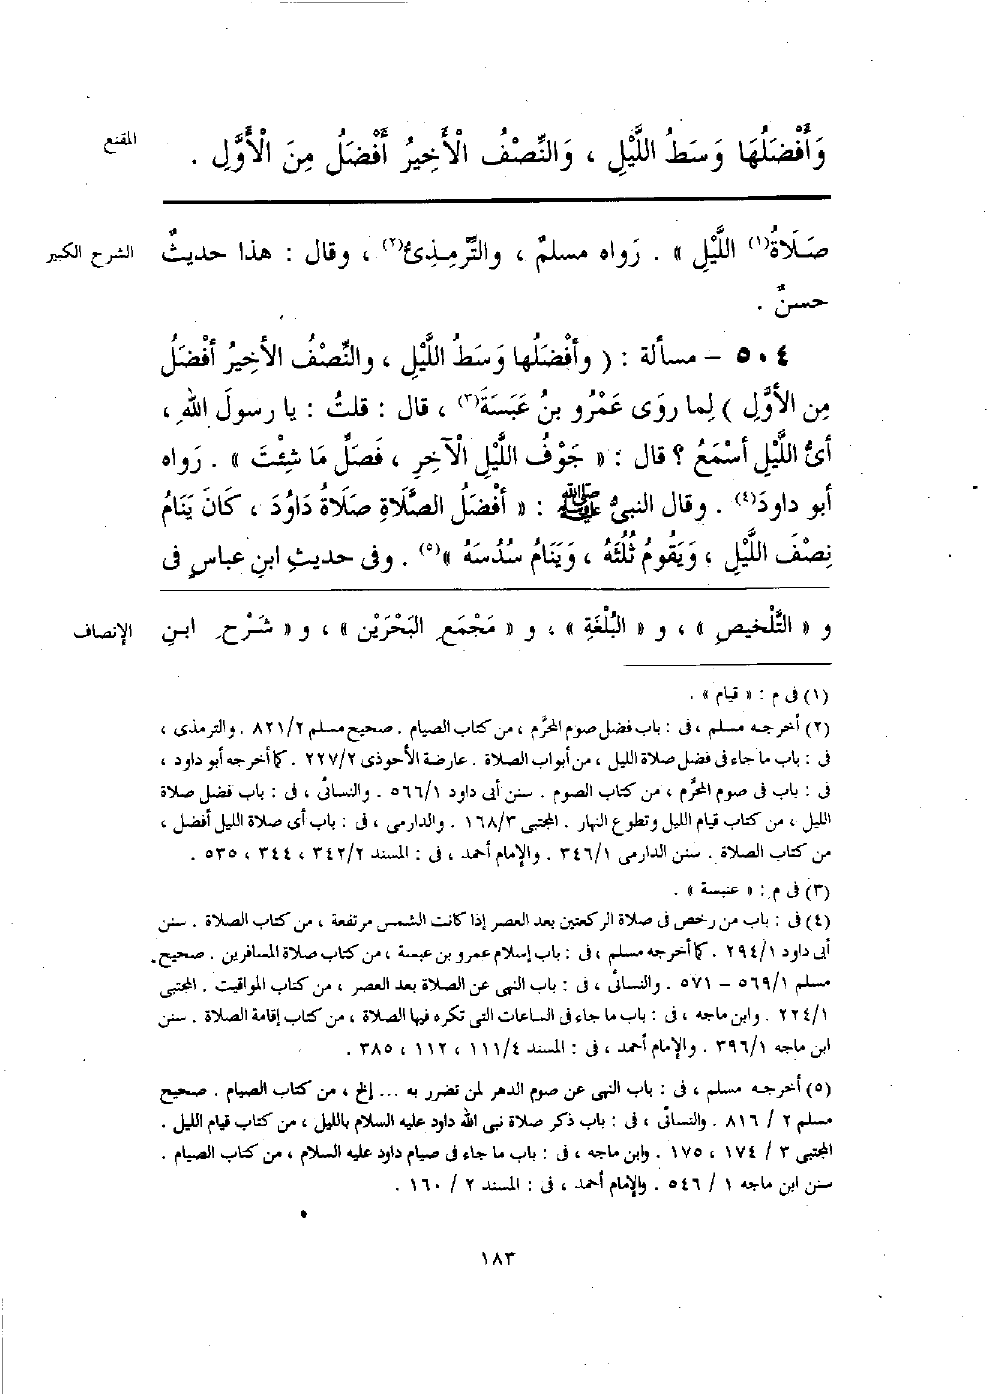 المقنع
وَأَفْضَلُهَا وَسَطُ اللَّيْلِ ، وَالنِّصْفُ الْأَخِيرُ أَفْضَلُ مِنَ الْأَوَّلِ .
الشرح الكبير
صَلَاةُ(١) اللَّيْلِ » . رَواه مسلمٌ ، والتِّرمِذِىُّ(٢) ، وقال : هذا حديثٌ
حسنٌ .
٥٠٤ – مسألة : ( وأفْضَلُها وَسَطُ اللَّيْلِ ، والنِّصْفُ الأخيرُ أفْضَلُ
مِن الأوَّلِ ) لِما روَى عَمْرُو بنُ عَبَسَةَ(٣) ، قال : قلتُ : يا رسولَ اللهِ ،
أىُّ اللَّيْلِ أسْمَعُ ؟ قال : « جَوْفُ اللَّيْلِ الْآخِرِ ، فَصَلِّ مَا شِئْتَ » . رَواه
أبو داودَ(٤) . وقال النبىُّ ﷺ : « أفْضَلُ الصَّلَاةِ صَلَاةُ دَاوُدَ ، كَانَ يَنَامُ
نِصْفَ اللَّيْلِ ، وَيَقُومُ ثُلُثَهُ ، وَيَنَامُ سُدُسَهُ »(٥) . وفى حديثِ ابنِ عباسٍ فى
الإنصاف
و « التَّلْخيصِ » ، و « البُلْغَةِ » ، و « مَجْمَعِ البَحْرَيْن » ، و « شَرْحِ ابنِ
(١) فى م : « قيام » .
(٢) أخرجه مسلم ، فى : باب فضل صوم المحرَّم ، من كتاب الصيام . صحيح مسلم ٨٢١/٢ . والترمذى ،
فى : باب ما جاء فى فضل صلاة الليل ، من أبواب الصلاة . عارضة الأحوذى ٢٢٧/٢ . كما أخرجه أبو داود ،
فى : باب فى صوم المحرَّم ، من كتاب الصوم . سنن أبى داود ٥٦٦/١ . والنسائى ، فى : باب فضل صلاة
الليل ، من كتاب قيام الليل وتطوع النهار . المجتبى ١٦٨/٣ . والدارمى ، فى : باب أى صلاة الليل أفضل ،
من كتاب الصلاة . سنن الدارمى ٣٤٦/١ . والإمام أحمد ، فى : المسند ٣٤٢/٢ ، ٣٤٤ ، ٥٣٥ .
(٣) فى م : « عنبسة » .
(٤) فى : باب من رخص فى صلاة الركعتين بعد العصر إذا كانت الشمس مرتفعة ، من كتاب الصلاة . سنن
أبى داود ٢٩٤/١ . كما أخرجه مسلم ، فى : باب إسلام عمرو بن عبسة ، من كتاب صلاة المسافرين . صحيح
مسلم ٥٦٩/١ – ٥٧١ . والنسائى ، فى : باب النهى عن الصلاة بعد العصر ، من كتاب المواقيت . المجتبى
٢٢٤/١ . وابن ماجه ، فى : باب ما جاء فى الساعات التى تكره فيها الصلاة ، من كتاب إقامة الصلاة . سنن
ابن ماجه ٣٩٦/١ . والإمام أحمد ، فى : المسند ١١١/٤ ، ١١٢ ، ٣٨٥ .
(٥) أخرجه مسلم ، فى : باب النهى عن صوم الدهر لمن تضرر به ... إلخ ، من كتاب الصيام . صحيح
مسلم ٢ / ٨١٦ . والنسائى ، فى : باب ذكر صلاة نبى الله داود عليه السلام بالليل ، من كتاب قيام الليل .
المجتبى ٣ / ١٧٤ ، ١٧٥ . وابن ماجه ، فى : باب ما جاء فى صيام داود عليه السلام ، من كتاب الصيام .
سنن ابن ماجه ١ / ٥٤٦ . والإمام أحمد ، فى : المسند ٢ / ١٦٠ .
١٨٣